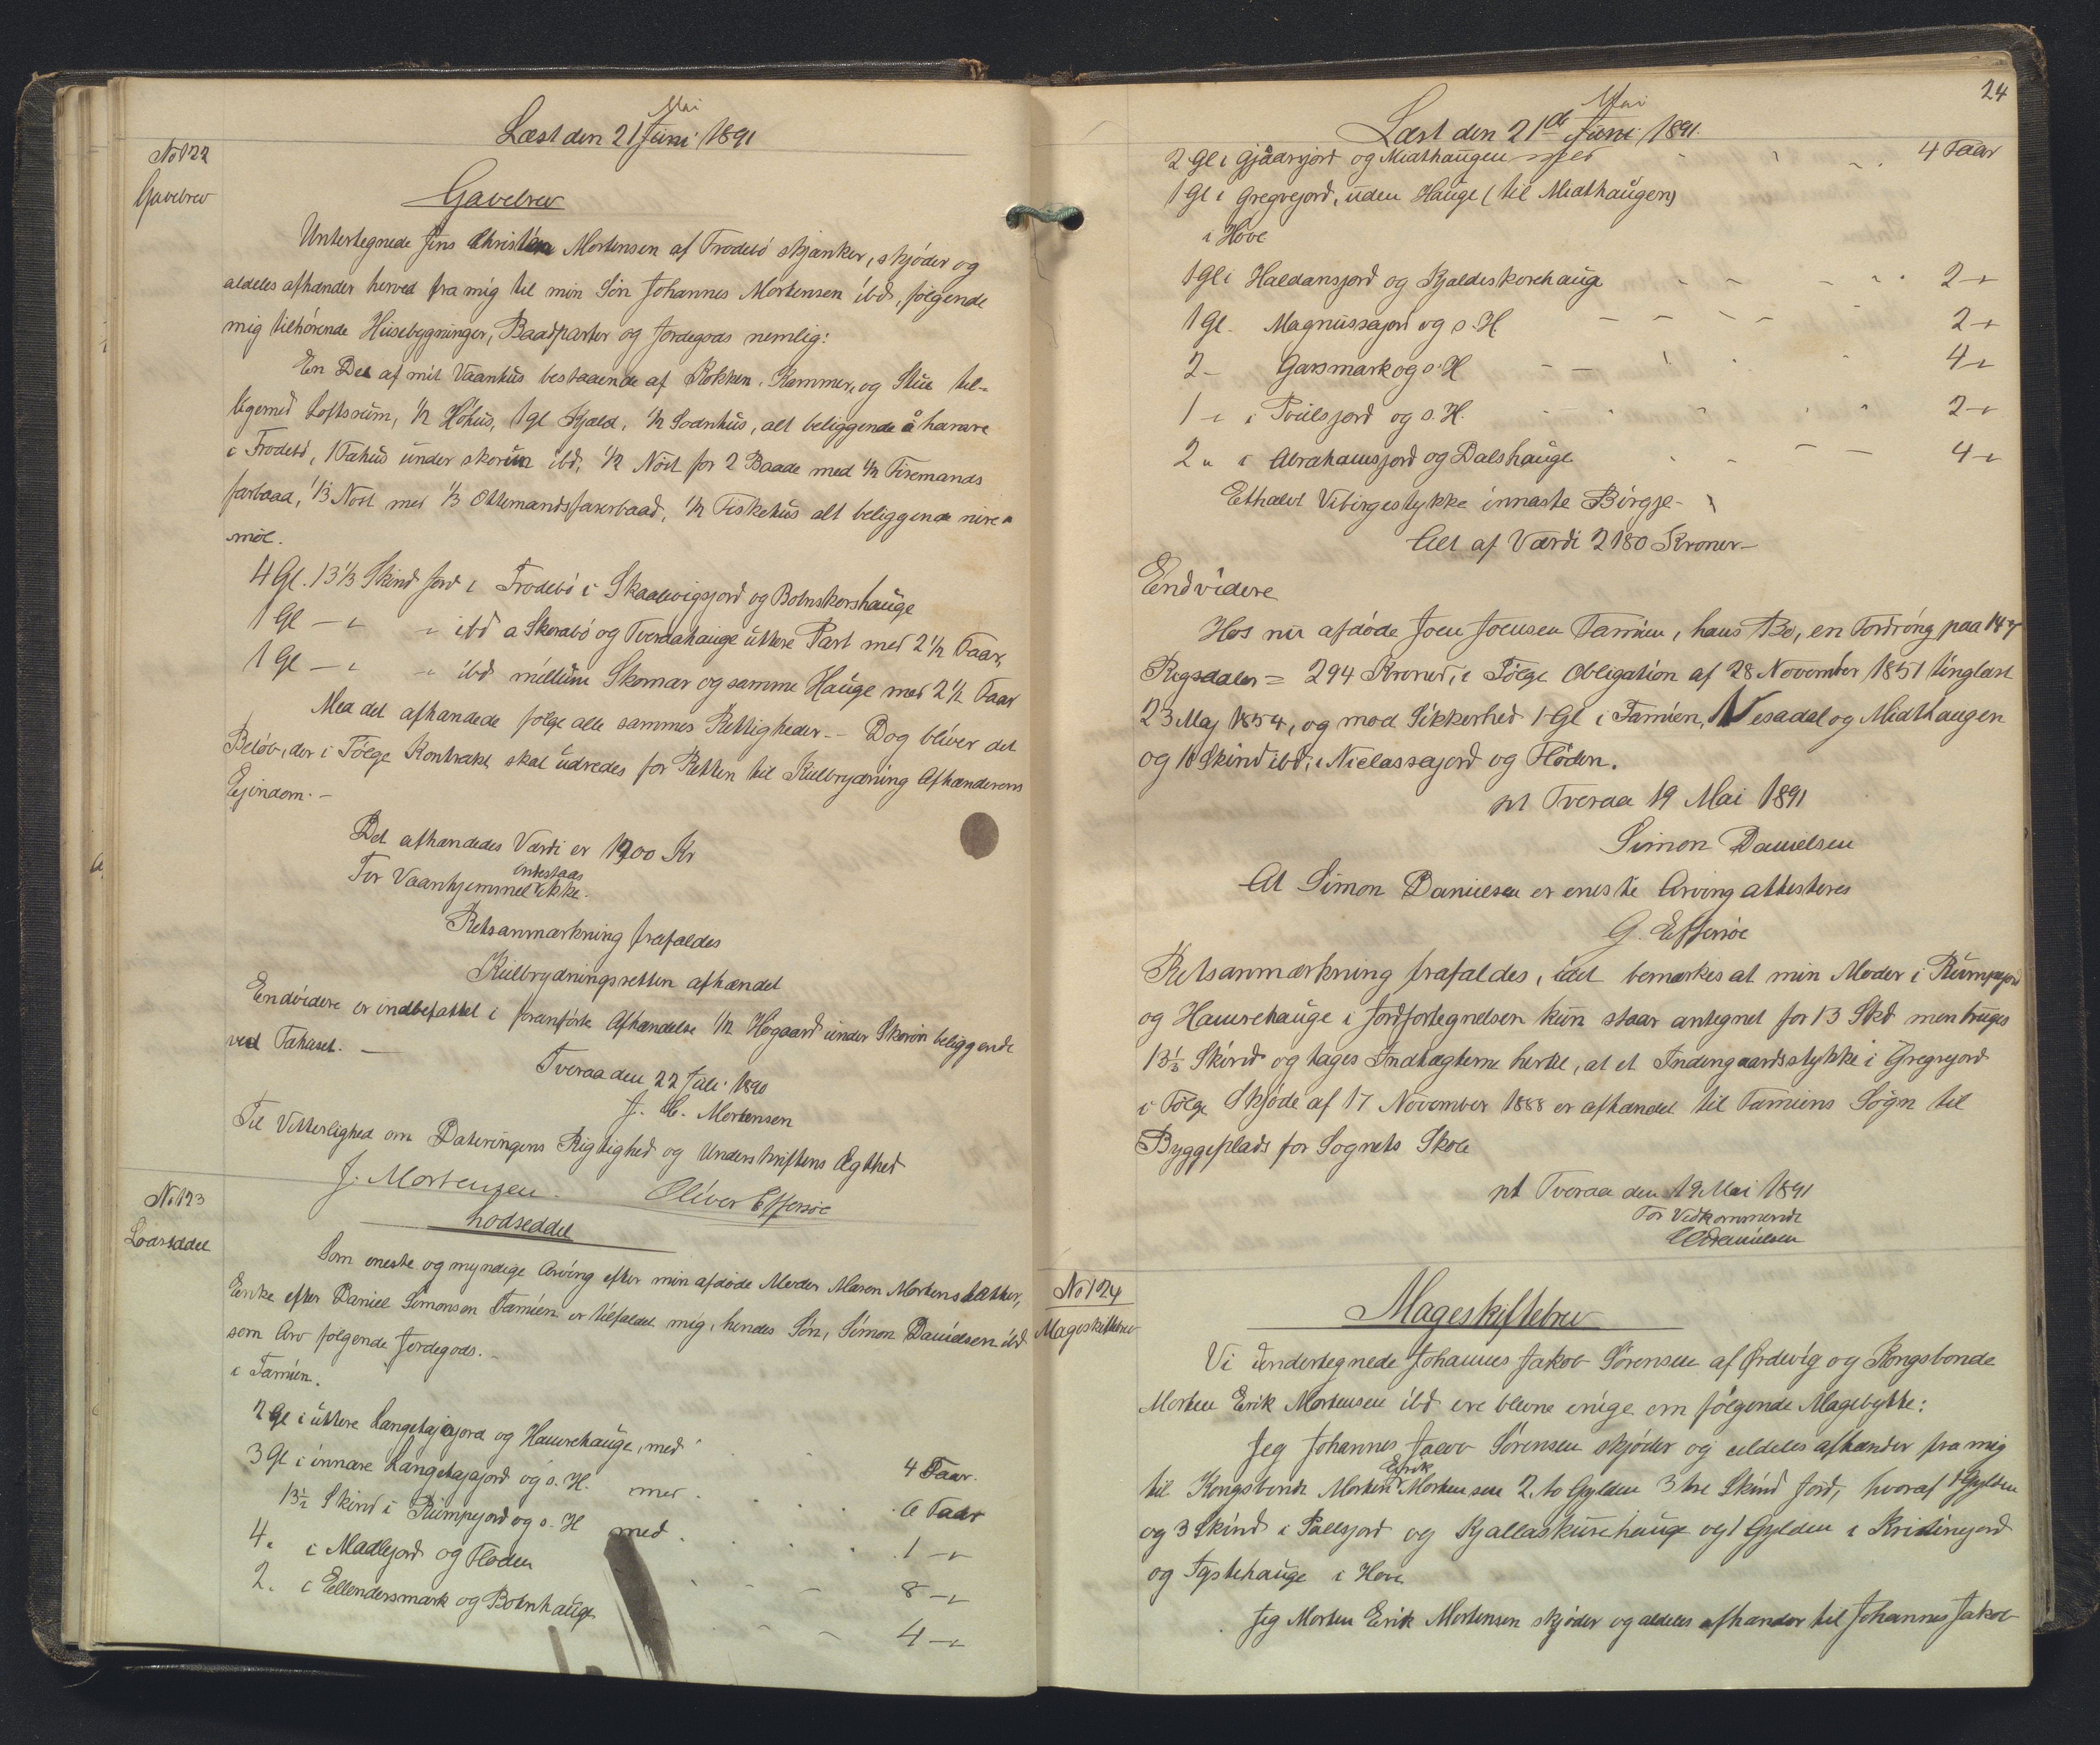 Mai
Læst den 21 Juni 1891
No 122
Gavebrev
Gavebrev
Untertegnede Jens Christian Mortensen af Frodebö skjænker, skjöder og
aldeles afhænder herved fra mig til min Sön Johannes Mortensen ibd, følgende
mig tilhörende Husebygninger, Baadparter og Jordegods nemlig:
En Del af mit Vaanhus bestaaende af Kökken, Kammer, og Stue til-
ligemed Loftsrum, 1/2 Höhus, 1 gl Kjald, 1/2 Sodnhus, alt beliggende å
i Frodebö, 1 Fæhus under skorun ibd, 1/2 Nöst for 2 Baade med 1/2 Firemands
farbaad, 1/3 Nöst med 1/3 Ottemandsfarerbaad, 1/2 Fiskehus alt beliggende
4 Gl. 13 1/3 Skind Jord i Frodebö i Skaalevigsjord og Botnskorshauge
1 Gl - " - " ibd a Skorabö og Tveraahauge uttere Part med 2 1/2 Faar,
1 Gl - " - " ibd millum Skomar og samme Hauge med 2 1/2 Faar
Med det afhændede følge alle sammes Rettigheder -- Dog bliver det
Belöb, der i Fölge Kontrakt skal udredes for Retten til Kulbrydning Afhænderens
Ejendom. -
Det afhændedes Værdi er 1900 Kr
indestaas
For Vaanhjemmel ikke.
Retsanmærkning frafaldes
Kulbrydningsretten afhændet
Endvidere er indbefattet i foranförte Afhændelse 1/2 Høgaard under Skorun beliggende
ved Fæhuset. -
Tveraa den 22 Juli 1890
J. C. Mortensen
Til Vitterlighed om Dateringens Rigtighed og Underskriftens Ægthed
J. Mortensen. Oliver Effersöe
No 123
Lodseddel
Lodseddel
Som eneste og myndige Arving efter min afdöde Moder Maren Mortensdatter,
Enke efter Daniel Simonsen Famien er tilfaldet mig, hendes Sön, Simon Danielsen ibd
som Arv følgende Jordegods. -
i Famien.
2 Gl i uttere Langetajajord og Hamrehauge, med 4 Faar.
3 Gl i innare Langetajajord og s. H. med 6 Faar
13 1/2 Skind i Rumpujord og s. H med 1 - "
4 " i Madlejord og Floden 8 - "
2 " i Ellendersmark og Botnhauge 4 - "
24
Mai
Læst den 21de Juni 1891.
2 Gl i Gjåarjord og Miðthaugen med 4 Faar
1 Gl i Gregrejord, uden Hauge (til Miðthaugen)
i Hove
1 Gl i Haldansjord og Kjaldeskorehauge 2 - "
1 Gl - Magnussajord og s. H 2 - "
2 - Garsmark og s. H 4 - "
1 - " i Poulsjord og s. H. 2 - "
2 " i Abrahamsjord og Dalshauge 4 - "
Ethalvt Vibirgestykke innaste Birgje -
Alt af Værdi 2180 Kroner -
Endvidere
Hos nu afdöde Joen Joensen Famien, hans Bo, en Fordring paa 147
Rigsdaler = 294 Kroner, i Fölge Obligation af 28 November 1851 tinglæst
23 Maj 1854, og mod Sikkerhed 1 Gl i Famien, Nesadal og Midthaugen
og 10 Skind ibd, i Niclassajord og Flöden.
pt Tveraa 19 Mai 1891
Simon Danielsen
At Simon Danielsen er eneste Arving attesteres
G. Effersöe
Retsanmærkning frafaldes, idet bemærkes at min Moder i Rumpujord
og Hamrehauge i Jordfortegnelsen kun staar antegnet for 13 Skd men bruges
13 1/3 Skind og tages Indtægterne hertil, at et Indengaardsstykke i Gregrejord
i Fölge Skjöde af 17 November 1888 er afhændet til Famiens Sogn til
Byggeplads for Sognets Skole
pt Tveraa den 19 Mai 1891
For Vedkommende
Danielsen
No 124
Mageskiftebrev
Mageskiftebrev
Vi undertegnede Johannes Jakob Sörensen af Ördevig og Kongsbonde
Morten Erik Mortensen ibd ere blevne enige om fölgende Magebytte:
Jeg Johannes Jacob Sörensen skjöder og aldeles afhænder fra mig
Erik
til Kongsbonde Morten Mortensen 2, to Gylden 3 tre Skind Jord, hvoraf 1 Gylden
og 3 Skind i Pallsjord og Kjallaskurehauge og 1 Gylden i Kristinejord
og Tystehauge i Hove
Jeg Morten Erik Mortensen skjöder og aldeles afhænder til Johannes Jakob